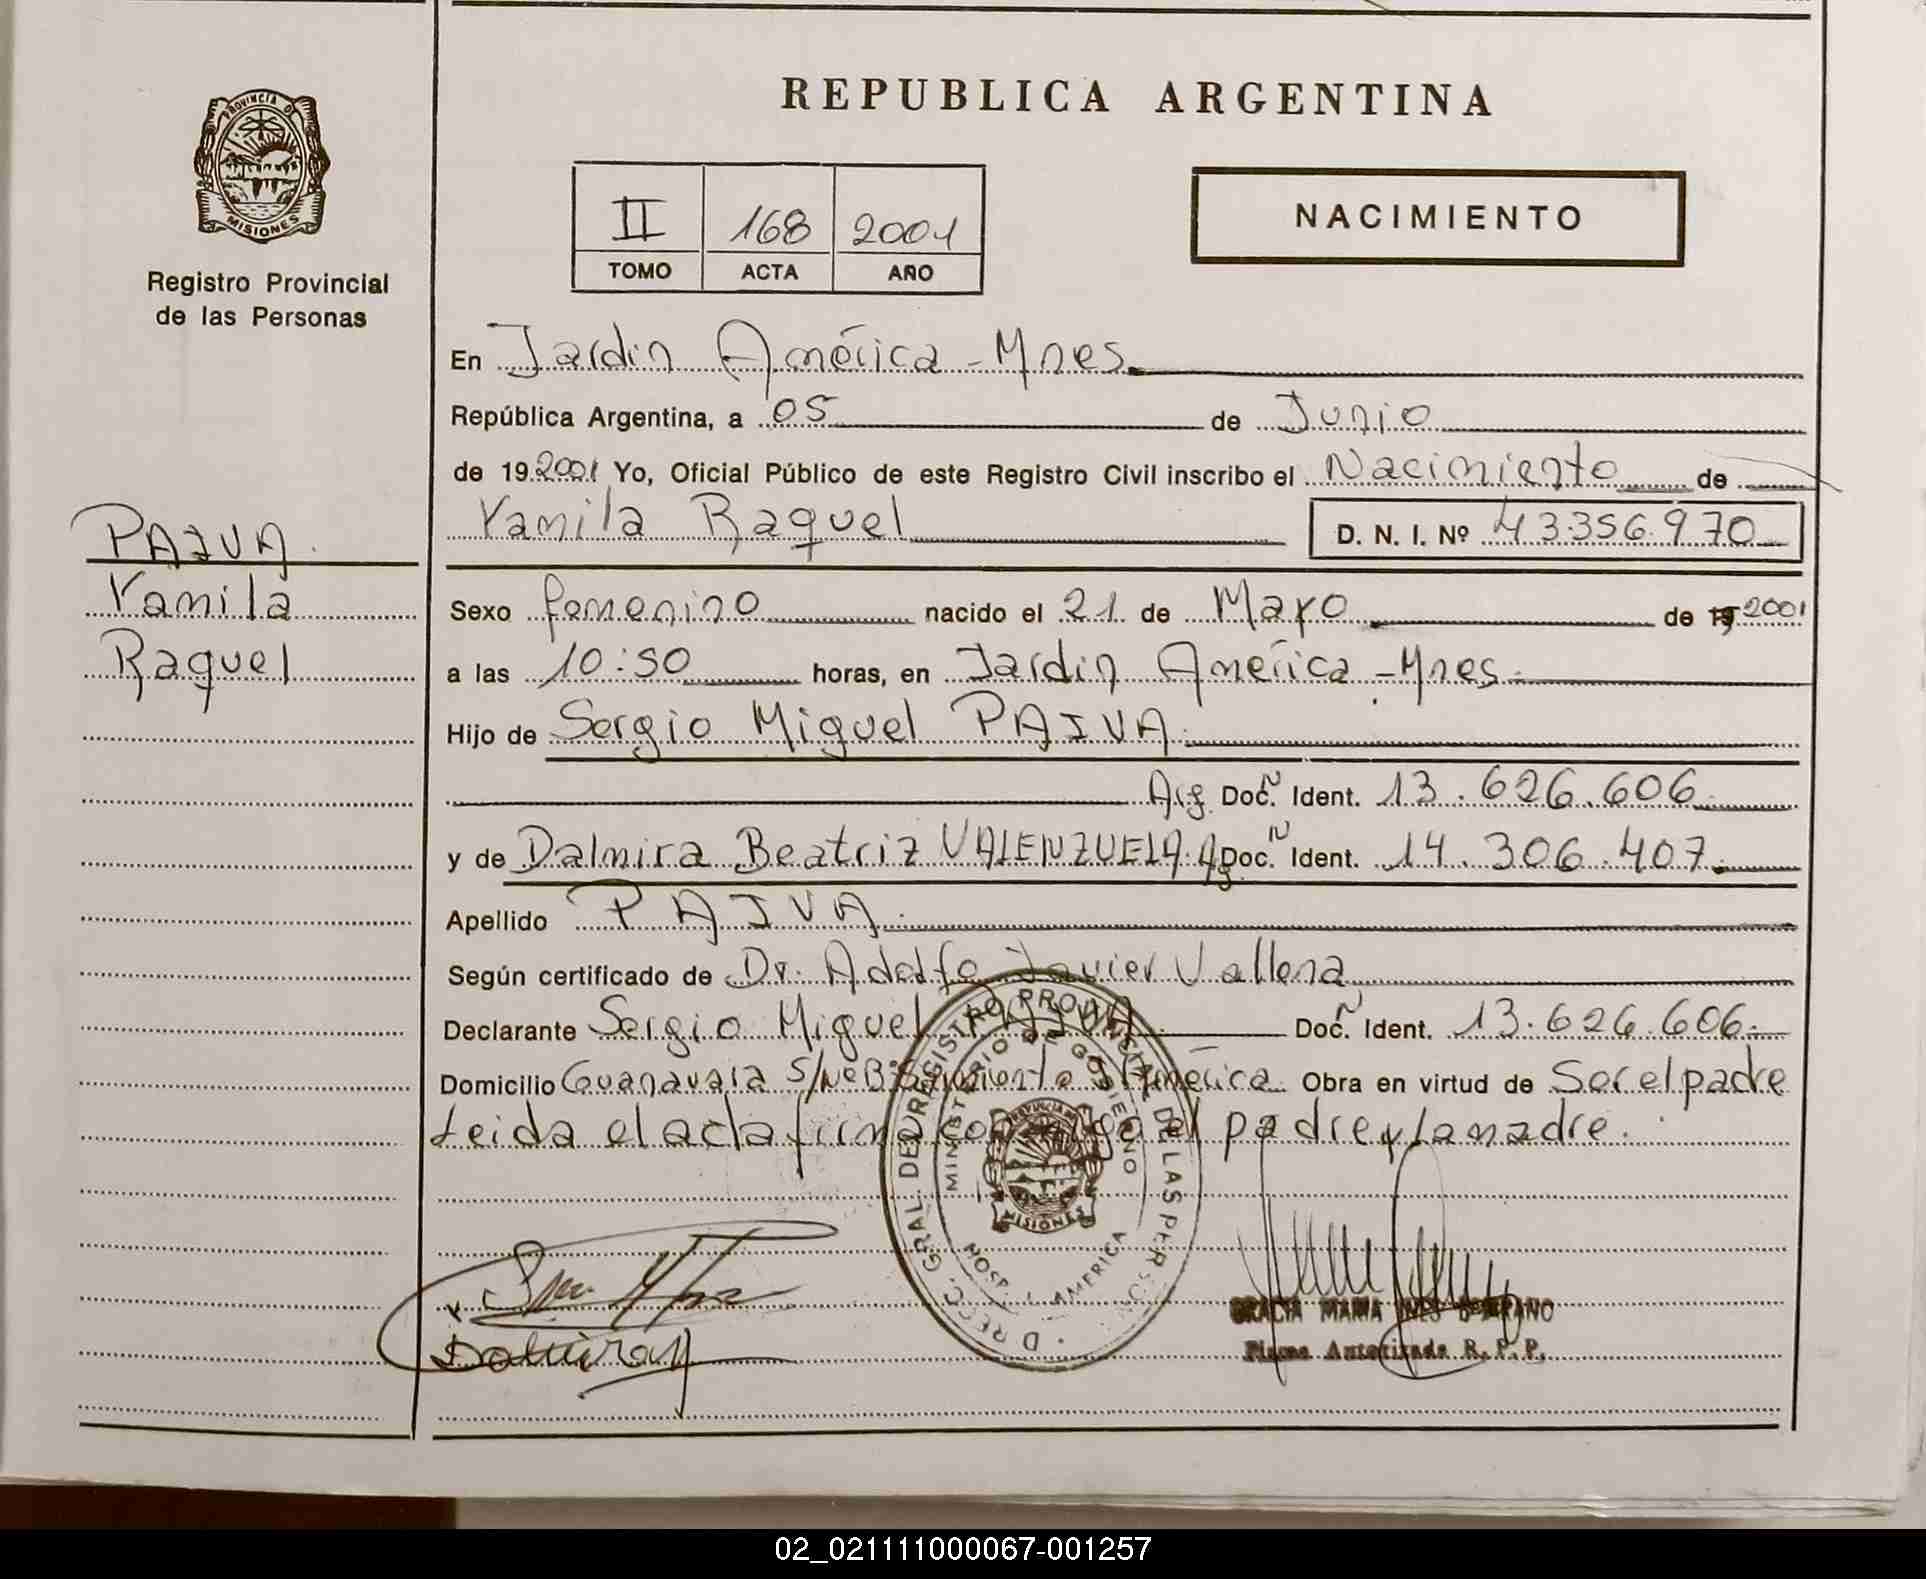 REPUBLICA ARGENTINA
PROVINCIA DE
MISIONES
Registro Provincial
de las Personas
II 168 2001
TOMO ACTA AÑO
NACIMIENTO
En Jardin América - Mnes
República Argentina, a 05 de Junio
de 19 2001 Yo, Oficial Público de este Registro Civil inscribo el Nacimiento de
Yamila Raquel D. N. I. Nº 43.356.970
PAIVA.
Yamila
Raquel
Sexo femenino nacido el 21 de Mayo de 19 2001
a las 10:50 horas, en Jardin América - Mnes.
Hijo de Sergio Miguel PAIVA.
Arg. Doc. Ident. 13.626.606
y de Dalmira Beatriz VALENZUELA. Arg. Doc. Ident. 14.306.407.
Apellido PAIVA.
Según certificado de Dr. Adolfo Javier Vallena
Declarante Sergio Miguel PAIVA. Doc. Ident. 13.626.606.
Domicilio Guanavara S/Nº Bº América. Obra en virtud de Ser el padre
Leida el acta firma conmigo el padre y la madre.
DIREC. GRAL. DEL REGISTRO PROVINCIAL DE LAS PERSONAS
MINISTERIO DE GOBIERNO
MISIONES
AMERICA
Dalmira
GRACIA MARIA INES
Firma Autorizada R. P. P.
02_021111000067-001257